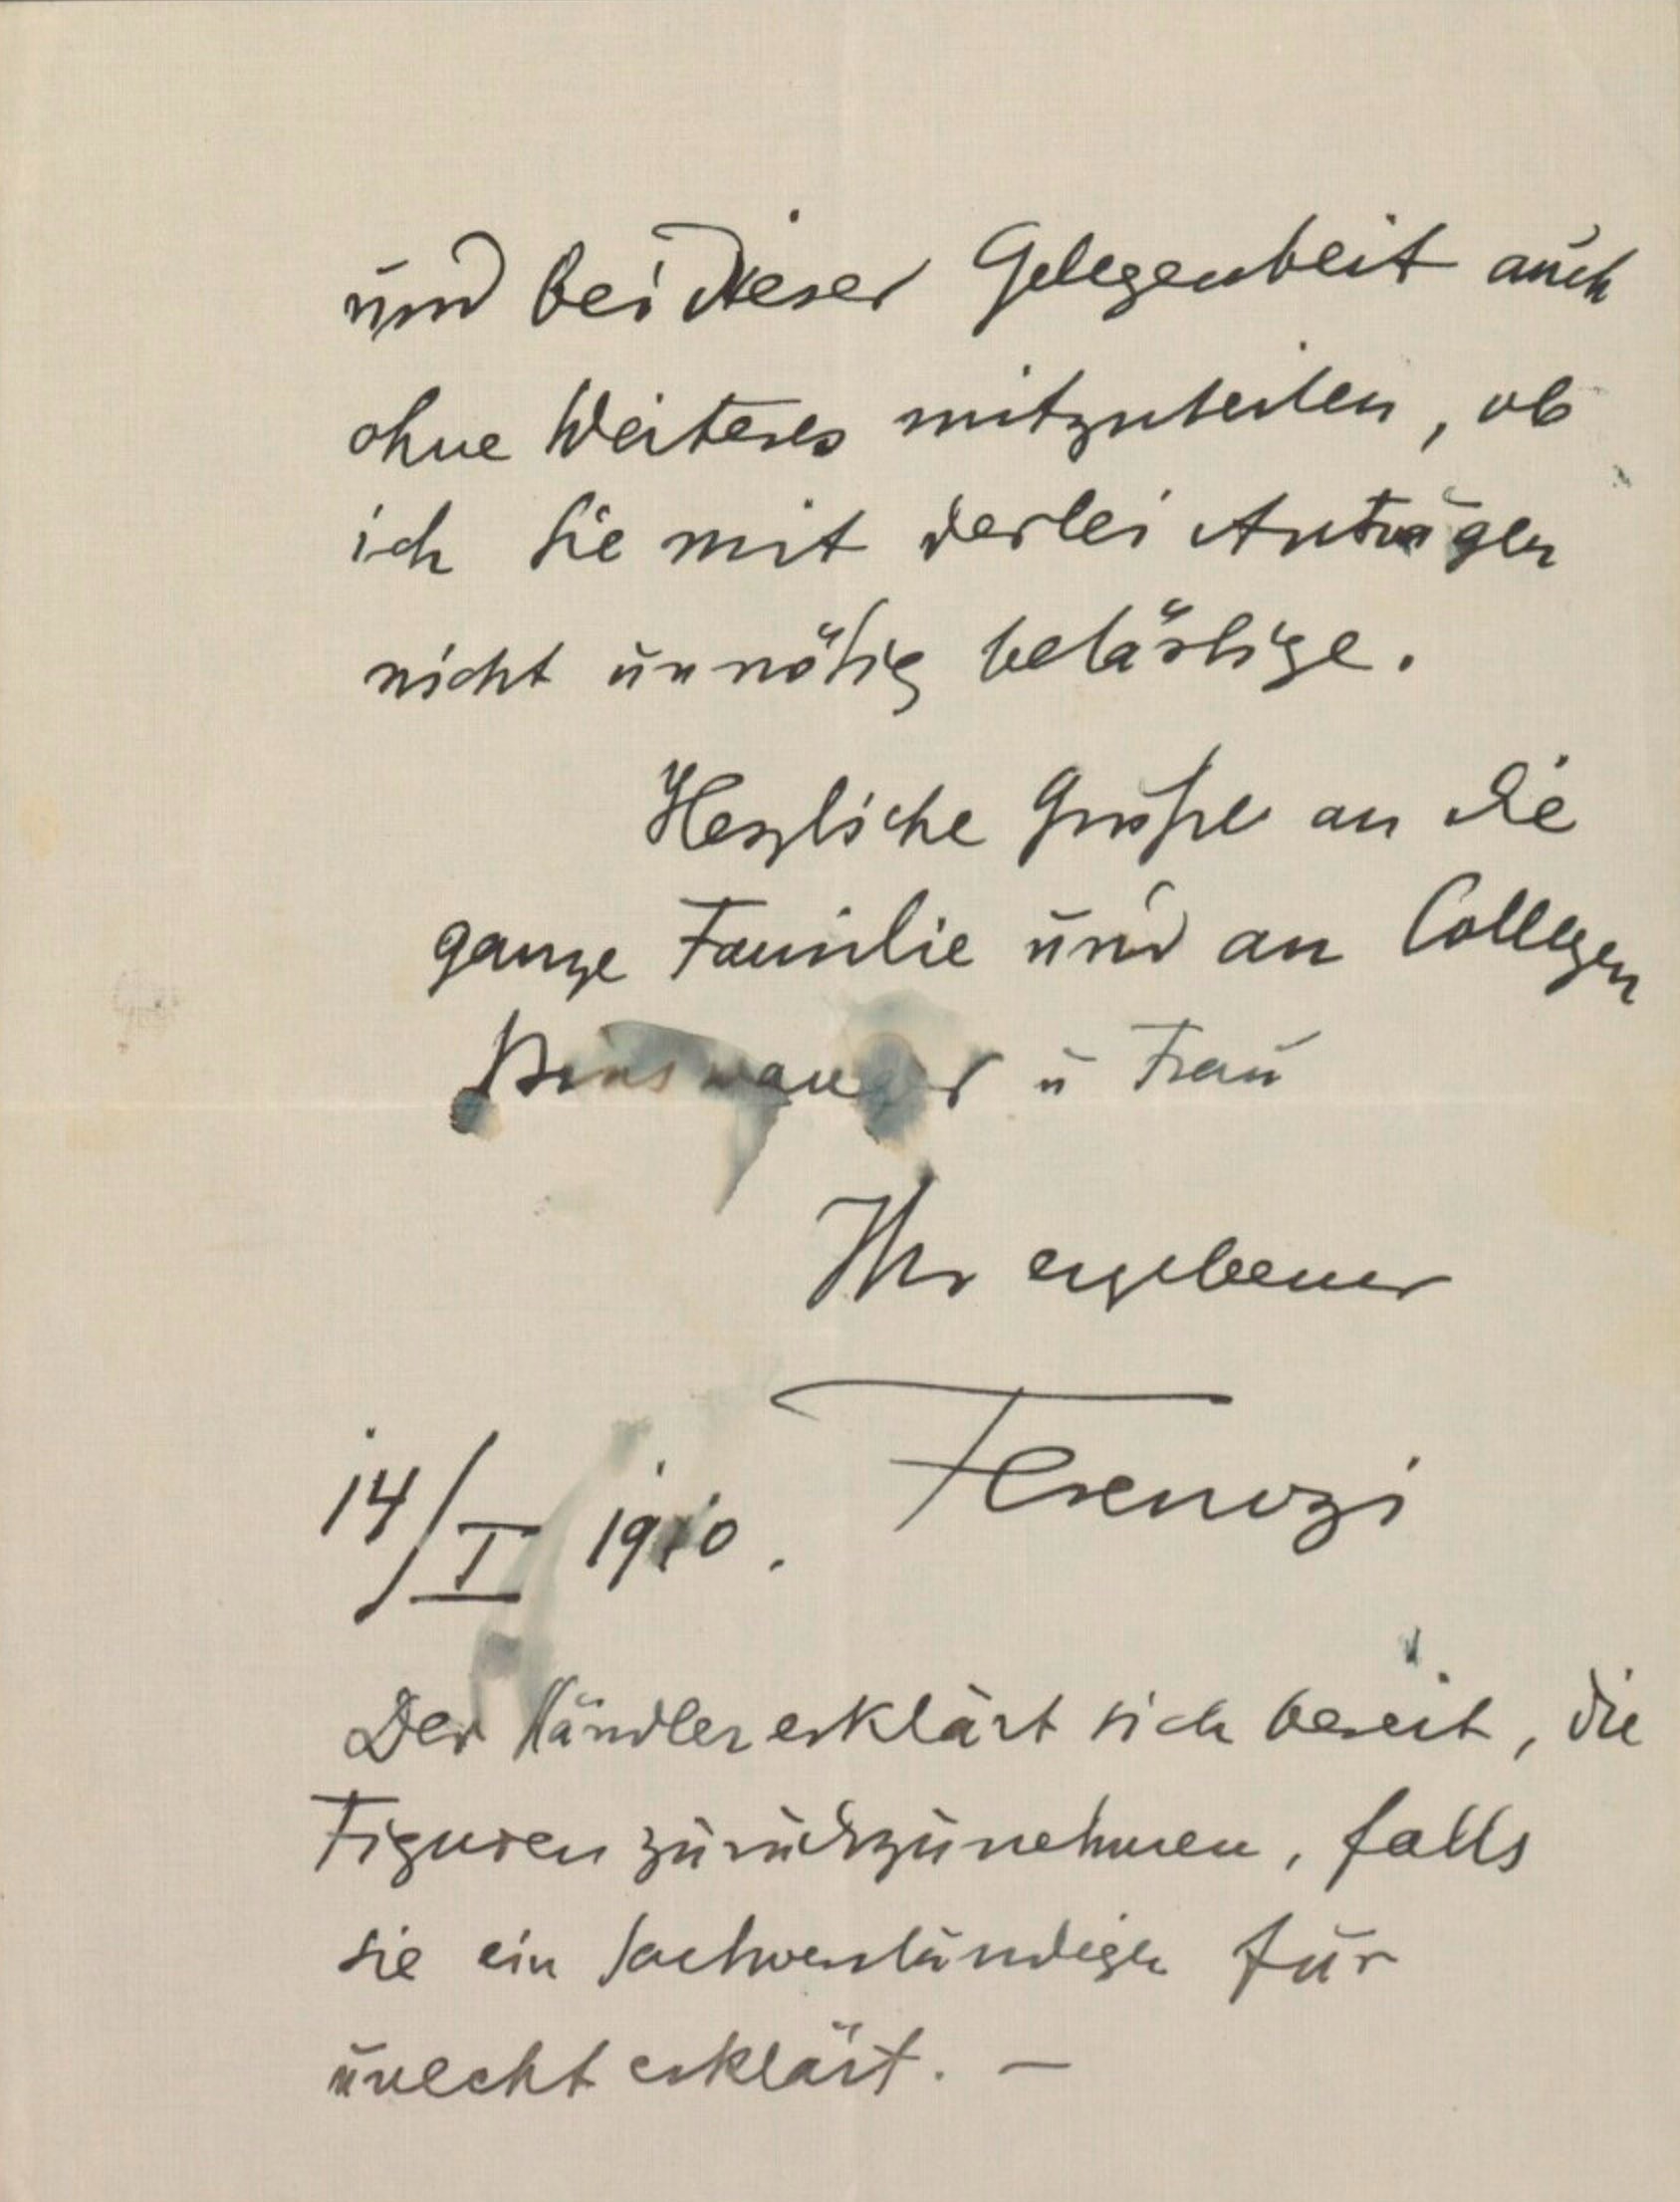 und bei dieser Gelegenheit auch
ohne Weiteres mitzuteilen, ob
ich Sie mit derlei Anträgen
nicht unnötig belästige.
Herzliche Grüße an die
ganze Familie und an Collegen
Binswanger u Frau
Ihr ergebener
Ferenczi
14/I 1910.
Der Händler erklärt sich bereit, die
Figuren zurückzunehmen, falls
sie ein Sachverständiger für
unecht erklärt. —